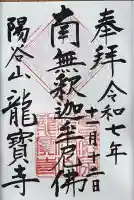 奉拜
令和七年
十一月十二日
南無釈迦牟尼佛
陽谷山
龍寶寺